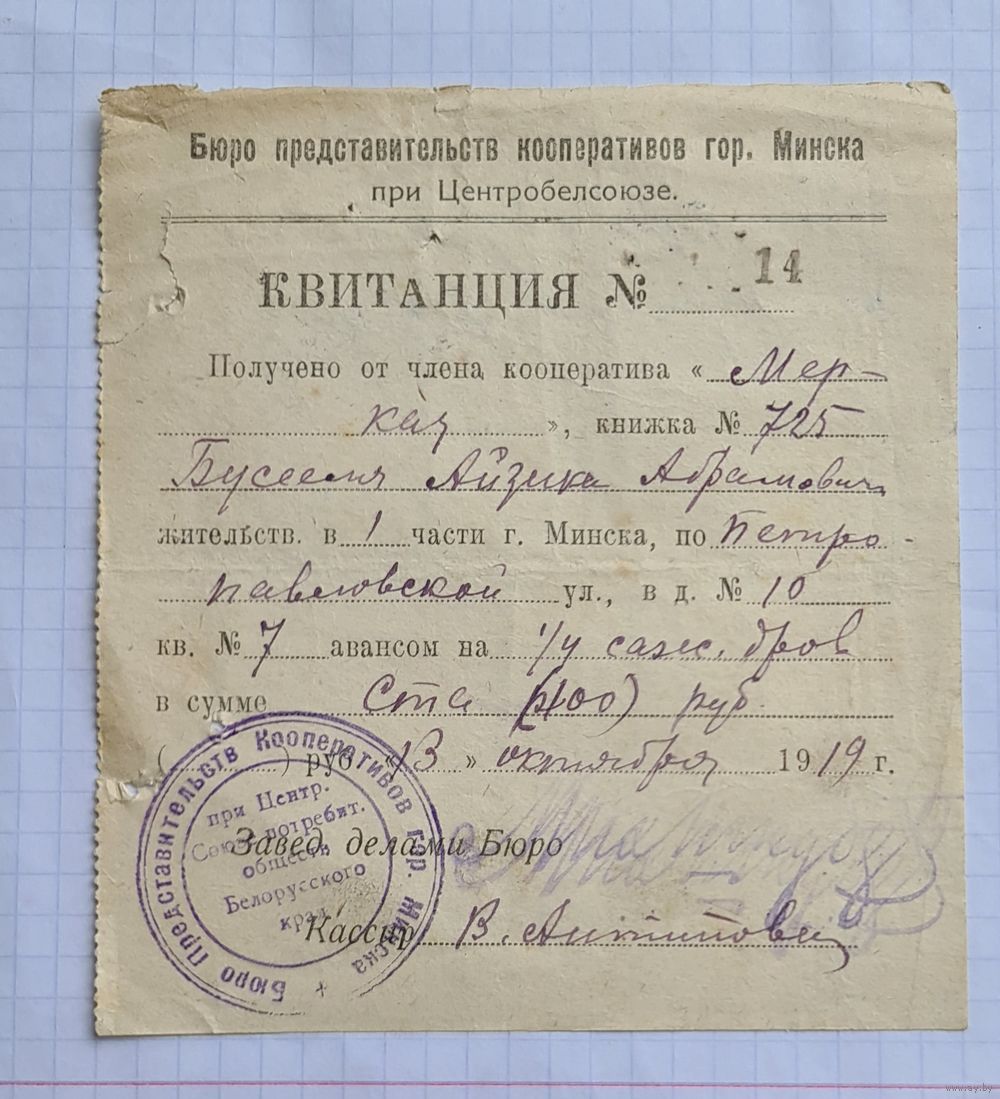 Бюро представительств кооперативов гор. Минска
при Центробелсоюзе.
КВИТАНЦИЯ № 14
Получено от члена кооператива « Мер-
», книжка № 725
Айзика Абрамович
жительств. в 1 части г. Минска, по Петро-
павловской ул., в д. № 10
кв. № 7 авансом на 1/4 саж. дров
в сумме Ста (100) руб.
( ) руб. « 13 » октября 1919 г.
Завед. делами Бюро
Кассир В.
Бюро Представительств Кооперативов гор. Минска
при Центр.
Союзе потребит.
обществ
Белорусского
края
www.ay.by